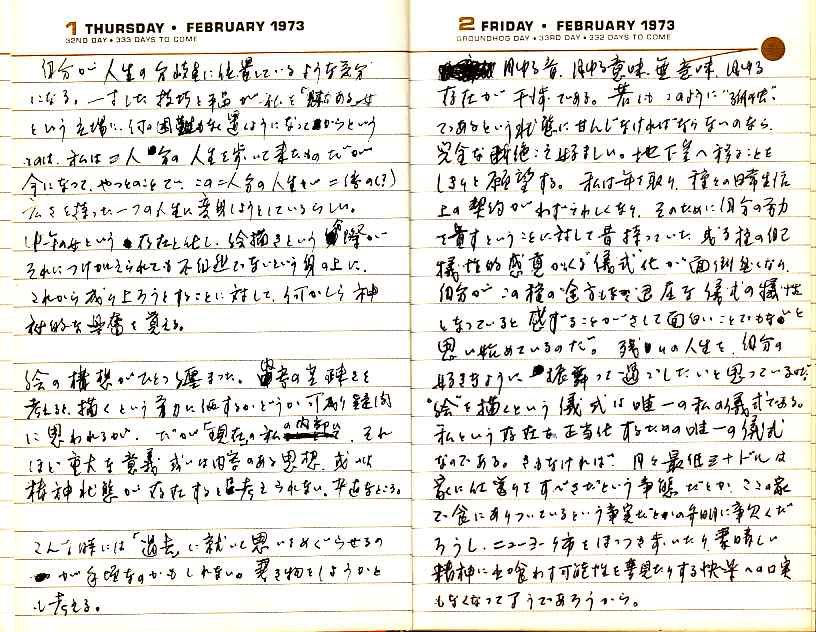 1 THURSDAY • FEBRUARY 1973
32ND DAY • 333 DAYS TO COME
自分が人生の分岐点に位置しているような気分
になる。
という立場に、何の困難もなく
私は二人分の人生を歩いて来たものだが
今になって、やっとのことで、この二人分の人生が二倍の(?)
広さを持った一つの人生に変身しようとしているらしい。
中年の女という存在と化し、絵描きという
それにつけ加えられても不自然でないという身の上に、
これから成り上ろうとすることに対して、何かしら神
秘的な興奮を覚える。
絵の構想がひとつ纏まった。
考えると、描くという努力に価するかどうか可成り疑問
に思われるが、だが「現在」の私の内部に、それ
ほど重大な意義或いは内容のある思想、或いは
精神状態が存在すると考えられない。平直なところ。
こんな時には「過去」に就いて思いをめぐらせるの
が手頃なのかもしれない。書き物をしようかと
も考える。
2 FRIDAY • FEBRUARY 1973
GROUNDHOG DAY • 33RD DAY • 332 DAYS TO COME
凡ゆる音、凡ゆる意味、無意味、凡ゆる
存在が干渉である。若しもこのように
であるという状態に甘んじなければならないのなら、
完全な断絶こそ好ましい。地下室へ移ることを
しきりと願望する。私は年を取り、種々の日常生活
上の契約がわずらわしくなり、そのために自分の努力
を費すということに対して昔持っていた、或る種の自己
犠牲的感真 かくる儀式化が面倒臭くなり、
自分がこの種の途方もなき退屈な儀式の犠牲
となっていると感ずることがさして面白いことでもないと
思い始めているのだ。残りの人生を、自分の
好きなように振舞って過ごしたいと思っているのだ。
"絵"を描くという儀式は唯一の私の儀式である。
私という存在を正当化するための唯一の儀式
なのである。さもなければ、月々最低 ドルは
家に仕送りをすべきだという事態だとか、ここの家
で食にありついているという事実だとかの弁明に事欠くだ
ろうし、ニューヨーク市をほっつき歩いたり、素晴しい
精神に出喰わす可能性を夢見たりする快楽への口実
もなくなって了うであろうから。